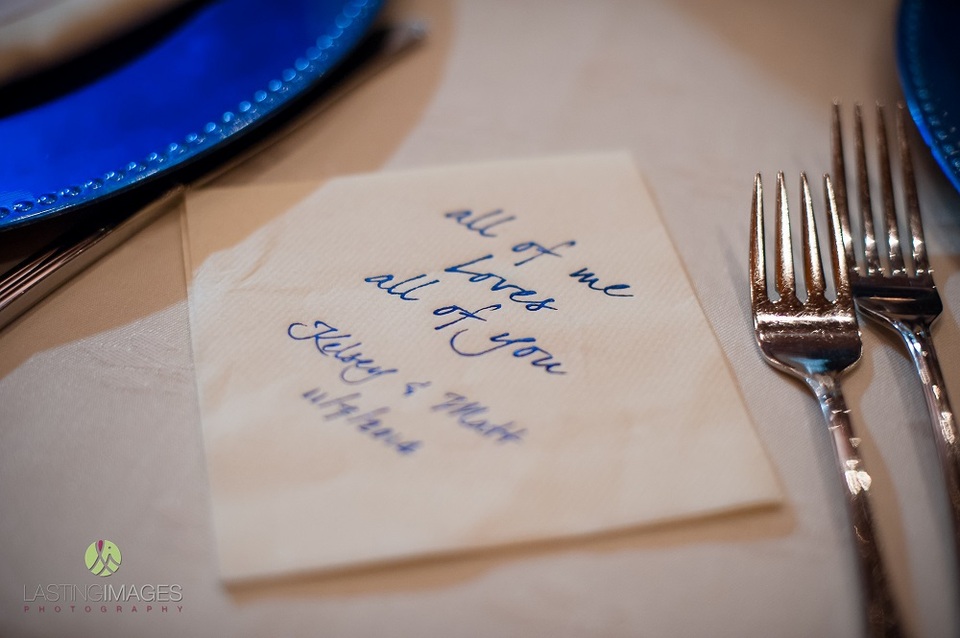 all of me
Loves
all of you
Kelsey & Matt
LASTINGIMAGES
PHOTOGRAPHY